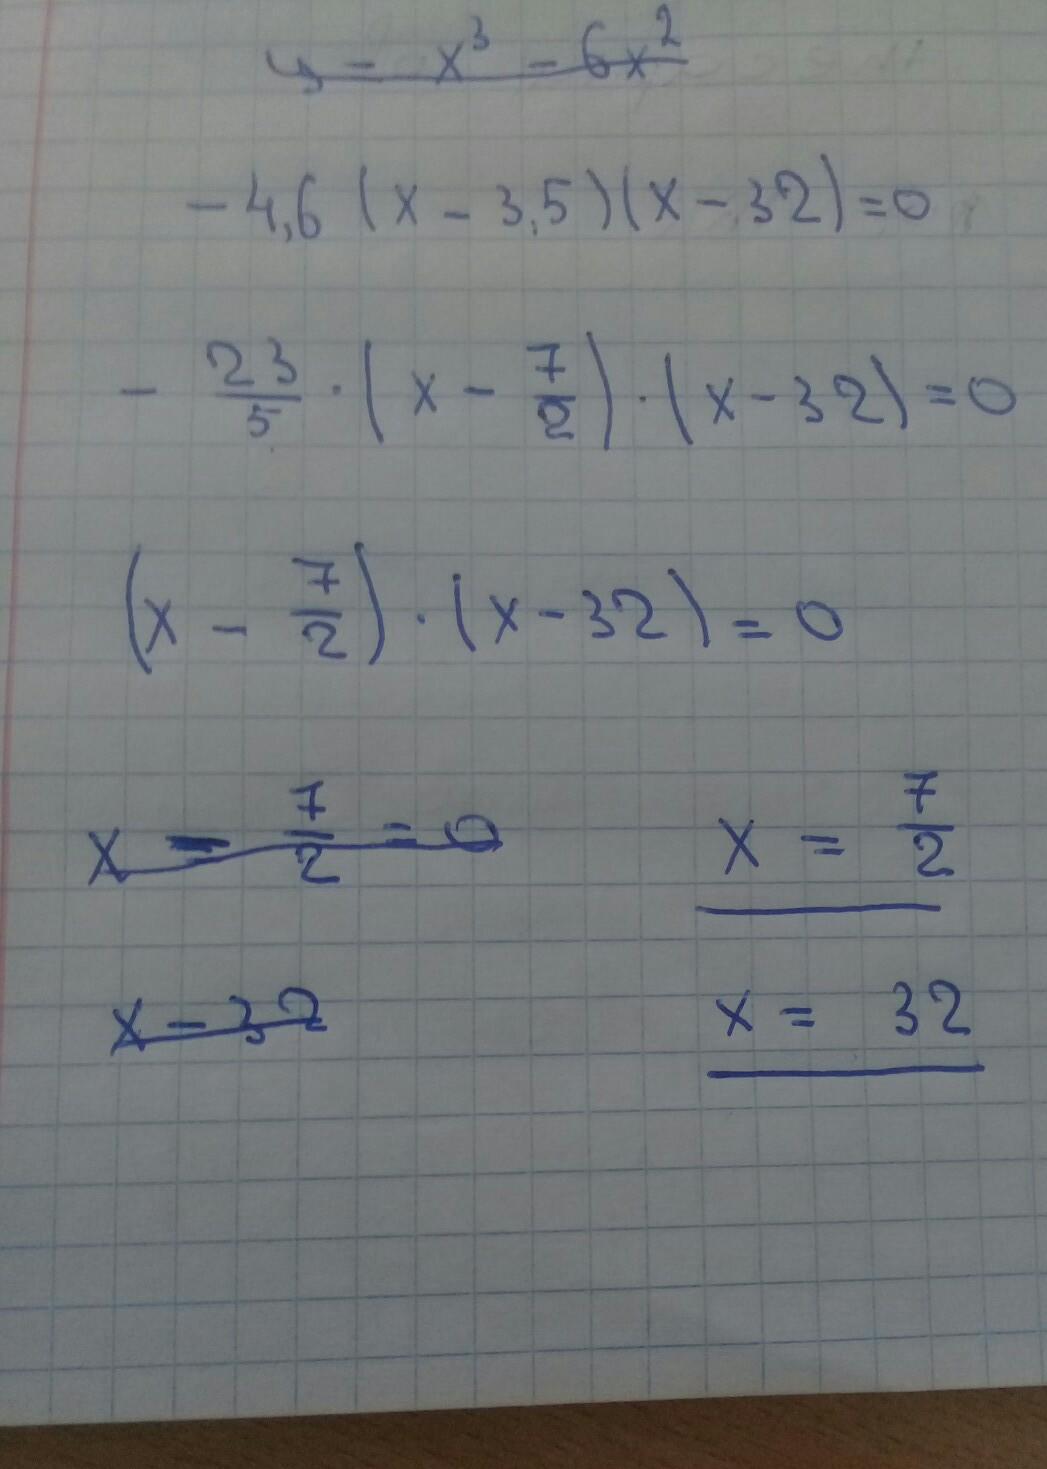 y = x³ - 6x²
-4,6 (x - 3,5)(x - 32) = 0
- 23/5 · (x - 7/2) · (x - 32) = 0
(x - 7/2) · (x - 32) = 0
x - 7/2 = 0 x = 7/2
x - 32 x = 32